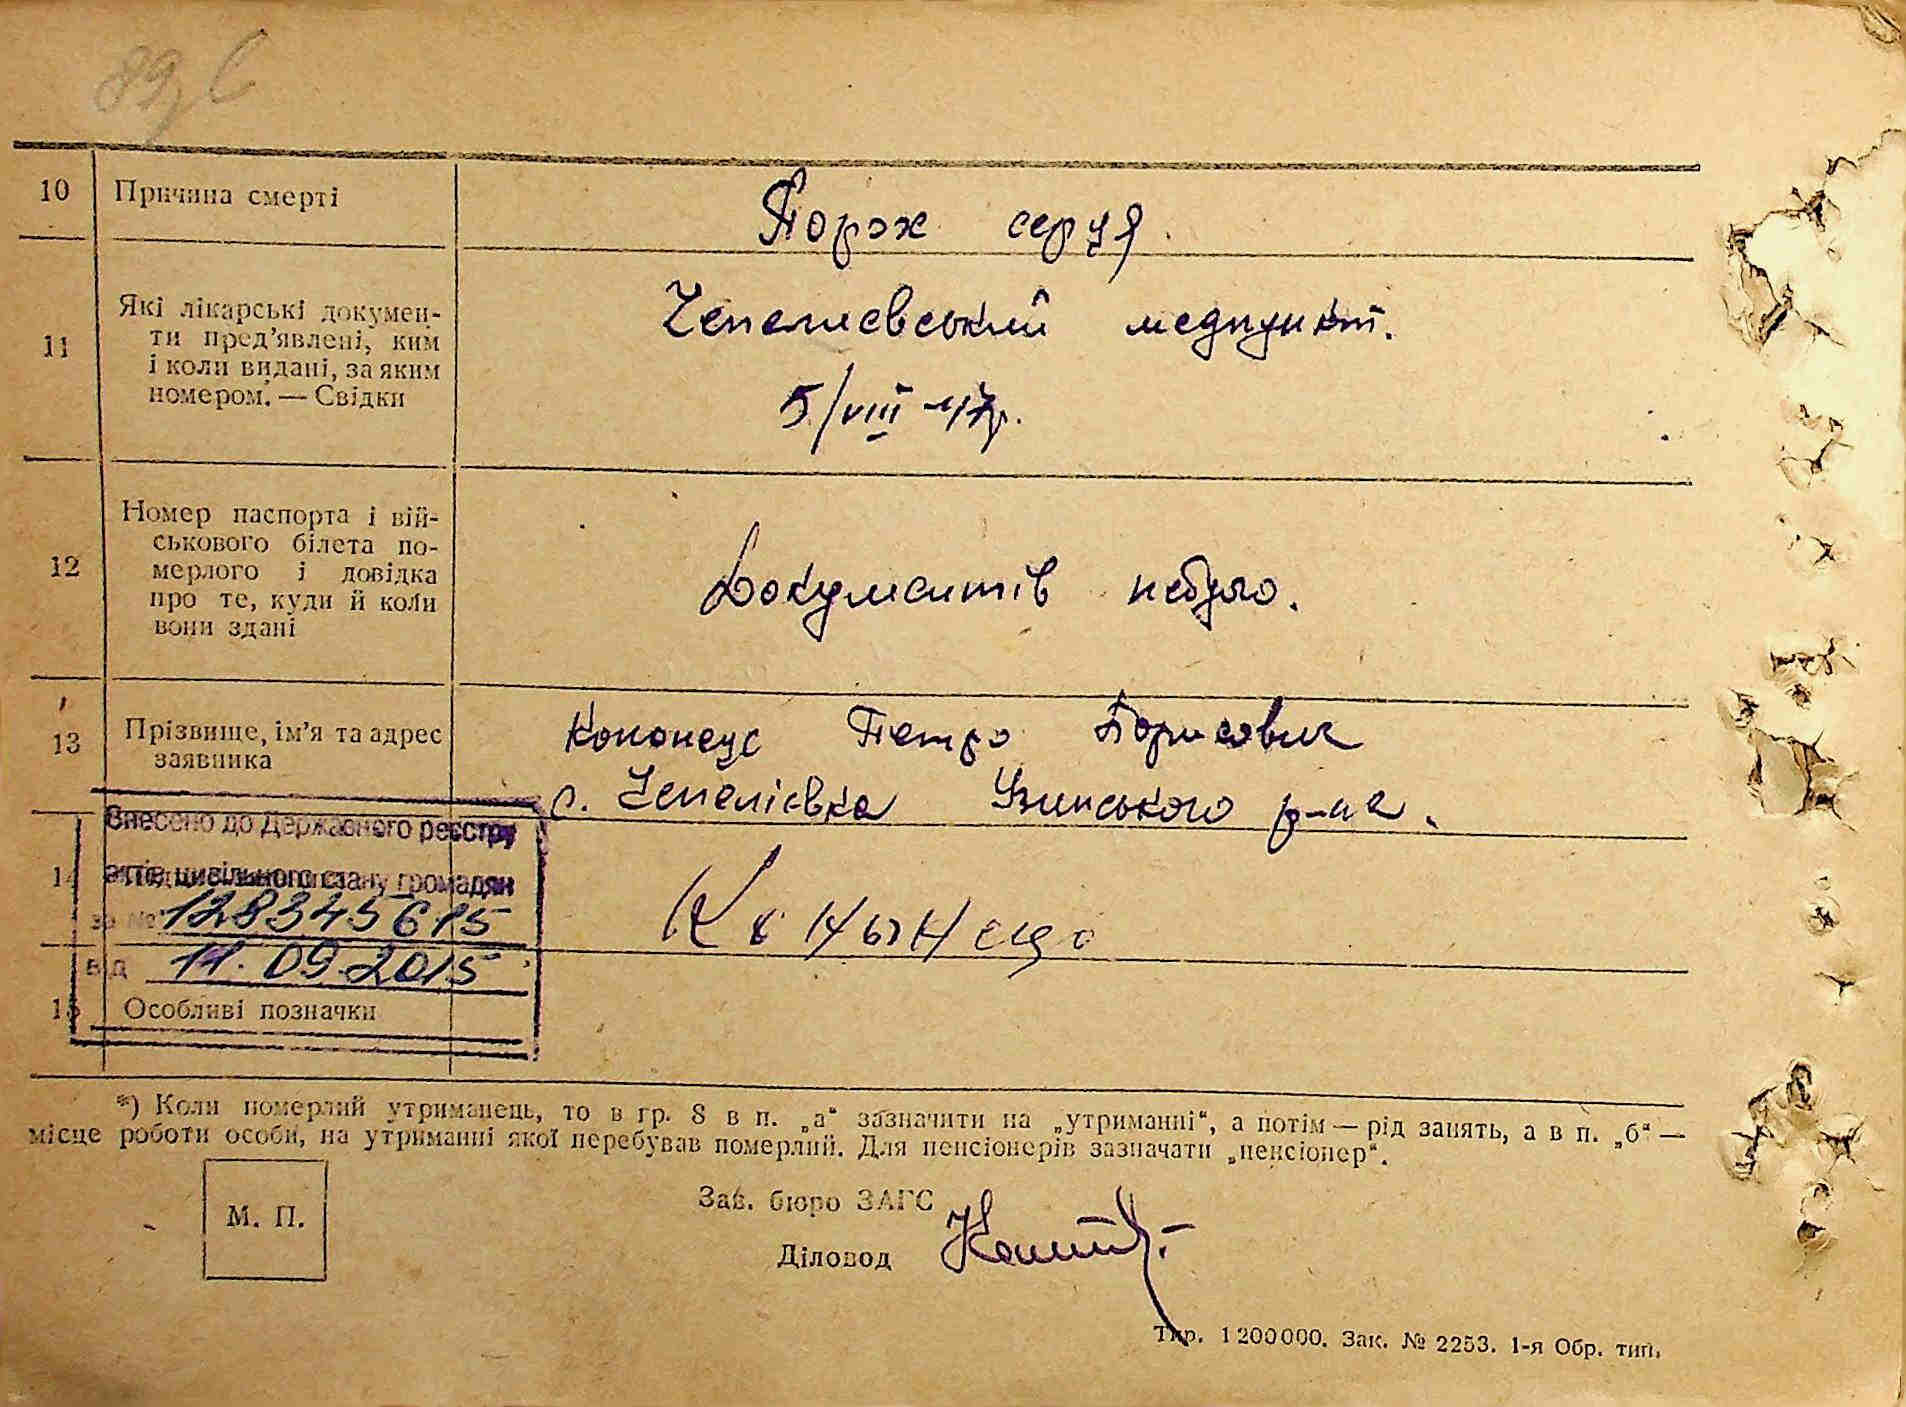 89, С
10 Причина смерті Порок серця.
11 Які лікарські докумен-
ти пред'явлені, ким
і коли видані, за яким
номером. — Свідки
Чепелиєвський медпункт.
5/VIII-47р.
12 Номер паспорта і вій-
ськового білета по-
мерлого і довідка
про те, куди й коли
вони здані
Документів небуло.
13 Прізвище, ім'я та адрес
заявника
Кононець Петро Борисович
с. Чепеліевка Узинського р-на.
Внесено до Державного реєстру
14 актів цивільного стану громадян
за № 128345615
від 11.09.2015
15 Особливі позначки
*) Коли померлий утриманець, то в гр. 8 в п. „а“ зазначити на „утриманні“, а потім — рід занять, а в п. „б“ —
місце роботи особи, на утриманні якої перебував померлий. Для пенсіонерів зазначати „пенсіонер“.
М. П.
Зав. бюро ЗАГС
Діловод
Тир. 1200000. Зак. № 2253. 1-я Обр. тип.